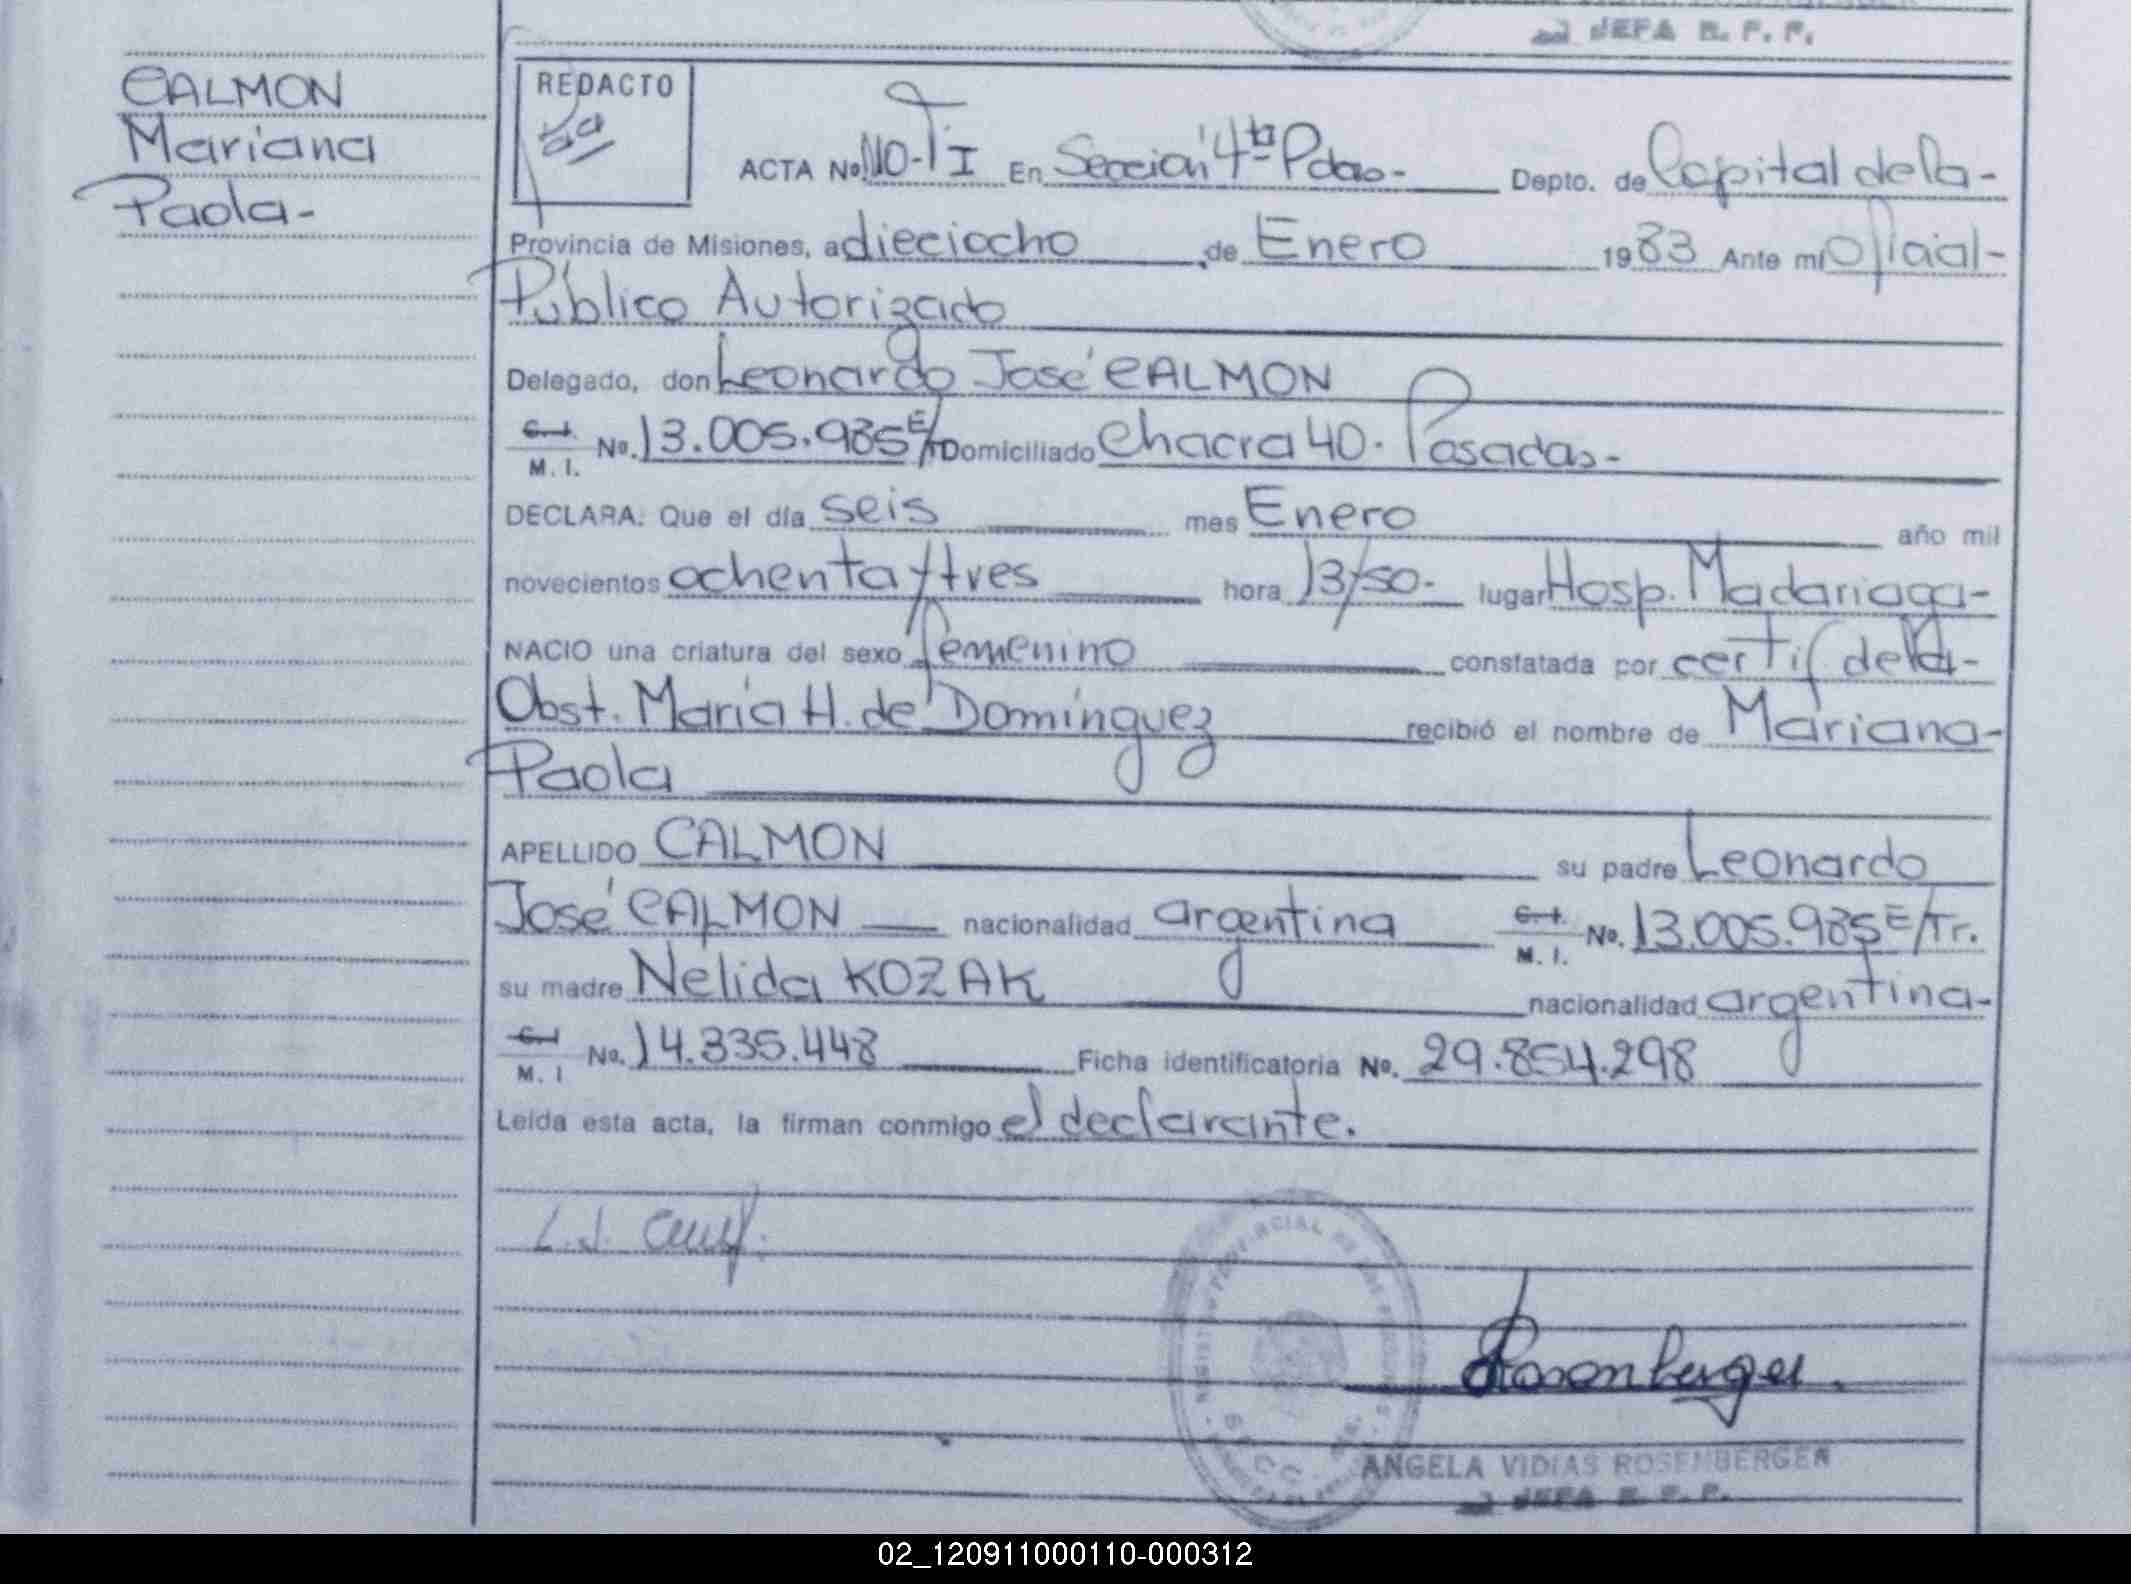 JEFA R. P. P.
CALMON
Mariana
Paola-
REDACTO
ACTA No. 110-T I En Sección 4ta Pdas.- Depto. de Capital de la-
Provincia de Misiones, a dieciocho de Enero 1983 Ante mí Oficial-
Público Autorizado
Delegado, don Leonardo José CALMON
C.I. M. I. No. 13.005.985 E/Tr Domiciliado Chacra 40. Posadas-
DECLARA: Que el día seis mes Enero año mil
novecientos ochenta y tres hora 13/50.- lugar Hosp. Madariaga-
NACIO una criatura del sexo femenino constatada por certif de la-
Obst. María H. de Domínguez recibió el nombre de Mariana-
Paola
APELLIDO CALMON su padre Leonardo
José CALMON nacionalidad argentina C.I. M. I. No. 13.005.985 E/Tr.
su madre Nelida KOZAK nacionalidad argentina-
C.I. M. I No. 14.335.448 Ficha identificatoria No. 29.854.298
Leída esta acta, la firman conmigo el declarante.
Rosenberger.
ANGELA VIDIAS ROSENBERGER
JEFA R. P. P.
02_120911000110-000312